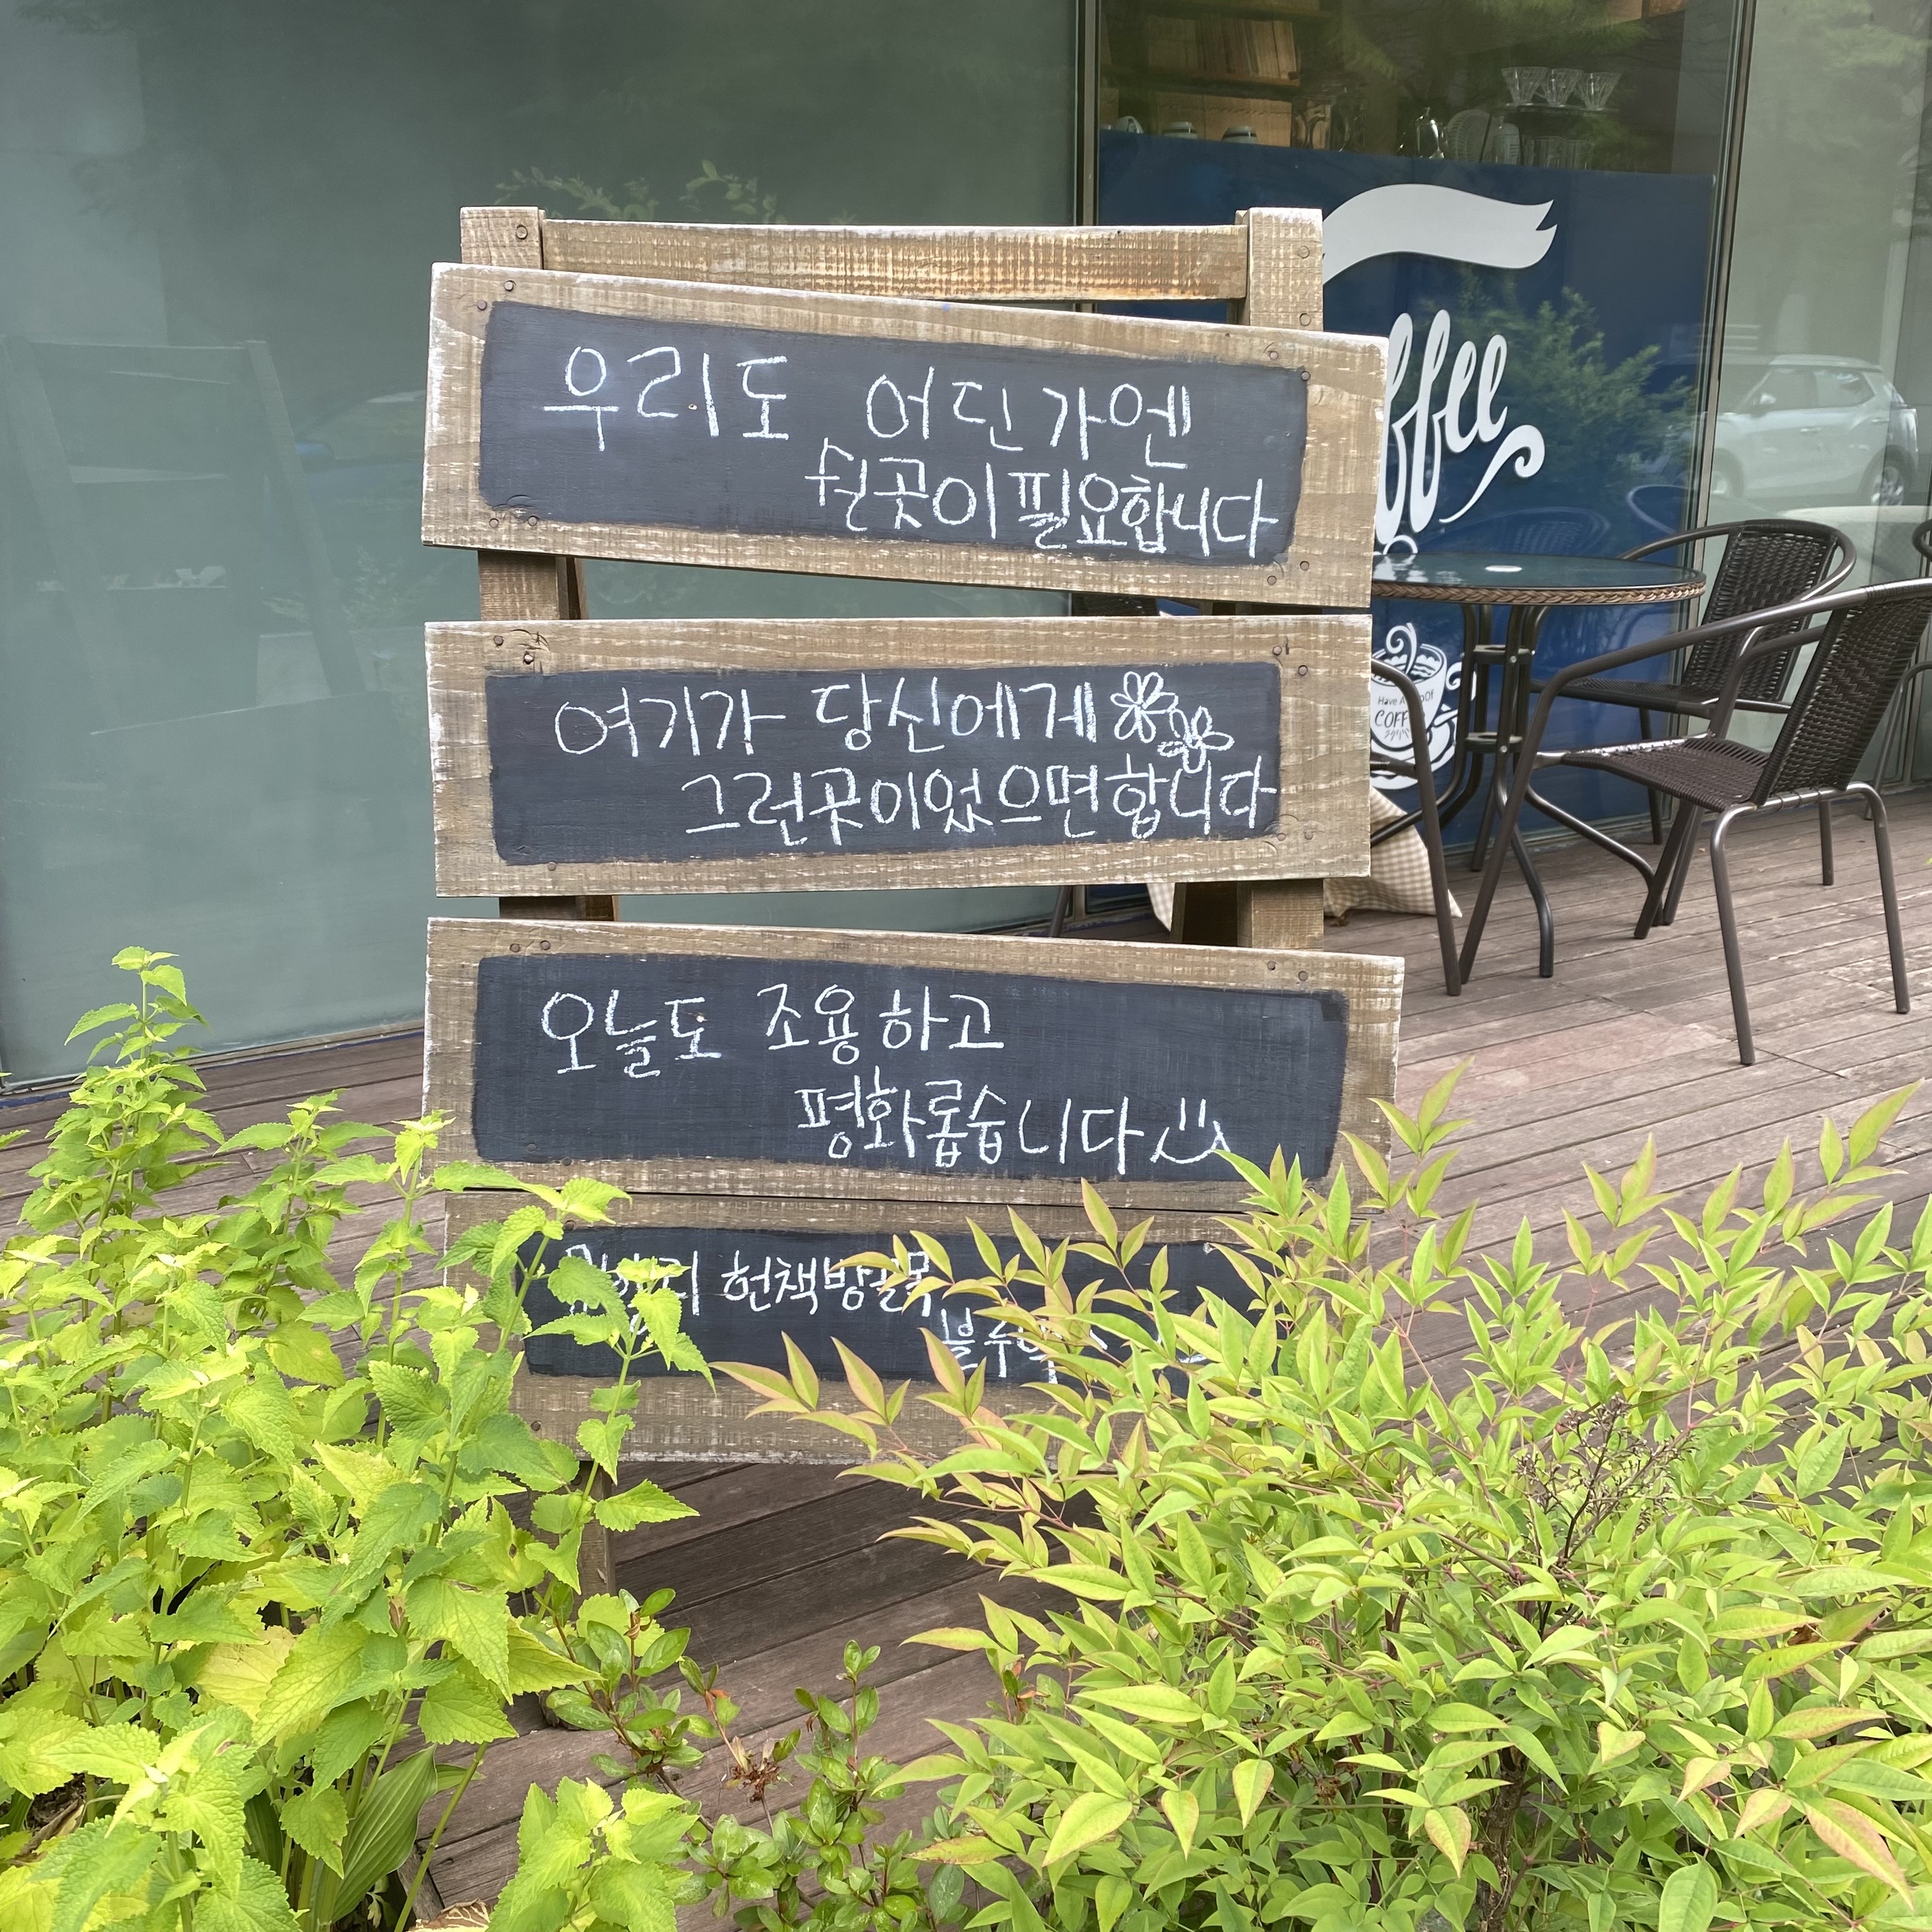 우리도 어딘가엔
쉴곳이 필요합니다
여기가 당신에게
그런곳이었으면 합니다
오늘도 조용하고
평화롭습니다
헌책방골목
Have A
COFF